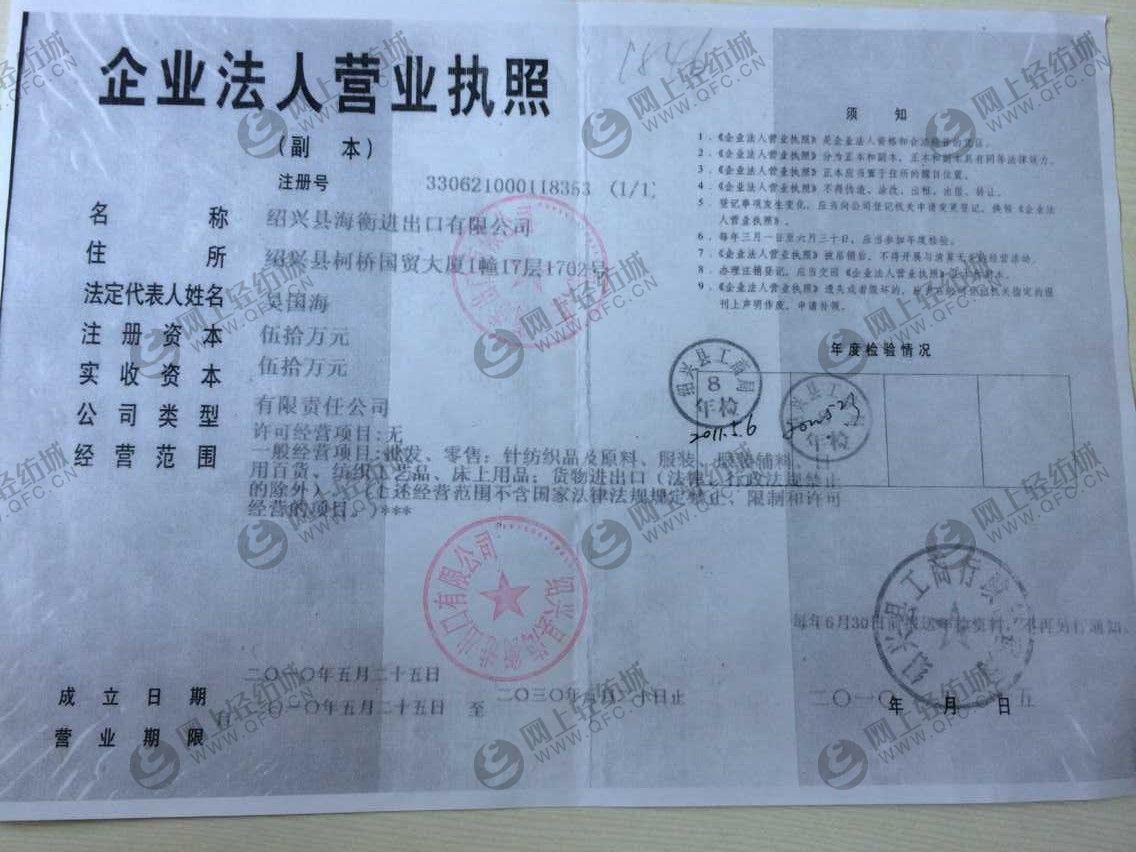 企业法人营业执照
(副 本)
注册号 330621000118353 (1/1)
名 称 绍兴县海衡进出口有限公司
住 所 绍兴县柯桥国贸大厦1幢17层1702号
法定代表人姓名 吴国海
注册资本 伍拾万元
实收资本 伍拾万元
公司类型 有限责任公司
经营范围 许可经营项目:无
一般经营项目:批发、零售:针纺织品及原料、服装、服装辅料、日
用百货、纺织工艺品、床上用品;货物进出口(法律、行政法规禁止
的除外)。(上述经营范围不含国家法律法规规定禁止、限制和许可
经营的项目。)***
成立日期 二〇一〇年五月二十五日
营业期限 自二〇一〇年五月二十五日 至 二〇三〇年 日止
须 知
1.《企业法人营业执照》是企业法人资格和合法经营的凭证。
2.《企业法人营业执照》分为正本和副本,正本和副本具有同等法律效力。
3.《企业法人营业执照》正本应当置于住所的醒目位置。
4.《企业法人营业执照》不得伪造、涂改、出租、出借、转让。
5.登记事项发生变化,应当向公司登记机关申请变更登记,换领《企业法
人营业执照》。
6.每年三月一日至六月三十日,应当参加年度检验。
7.《企业法人营业执照》被吊销后,不得开展与清算无关的经营活动。
8.办理注销登记,应当交回《企业法人营业执照》正本和副本。
9.《企业法人营业执照》遗失或者毁坏的,应当在公司登记机关指定的报
刊上声明作废,申请补领。
年度检验情况
绍兴县工商局
8
年检
2011.5.6
年检
每年6月30日前报送年检资料,不再另行通知。
绍兴县工商行
二〇一〇 年 月 日
网上轻纺城
WWW.QFC.CN